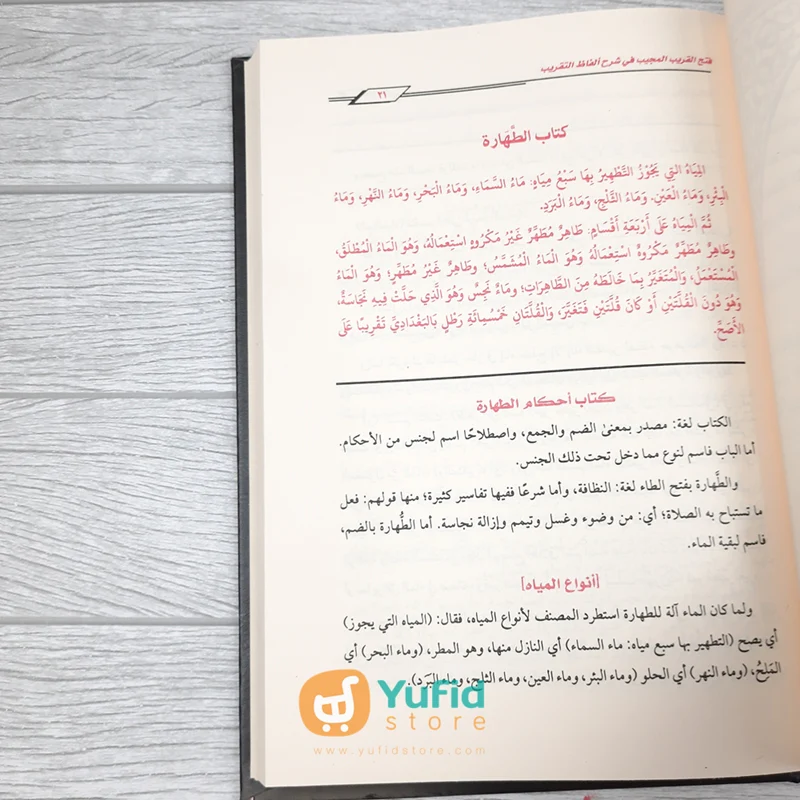 فتح القريب المجيب في شرح ألفاظ التقريب
٢١
كتاب الطَّهَارة
المِيَاهُ الَّتِي يَجُوْزُ التَّطْهِيرُ بِهَا سَبْعُ مِيَاهٍ: مَاءُ السَّمَاءِ، وَمَاءُ البَحْرِ، وَمَاءُ النَّهْرِ، وَمَاءُ
الْبِئْرِ، وَمَاءُ العَيْنِ، وَمَاءُ الثَّلْجِ، وَمَاءُ البَرَدِ.
ثُمَّ المِيَاهُ عَلَى أَرْبَعَةِ أَقْسَامٍ: طَاهِرٌ مُطَهِّرٌ غَيْرُ مَكْرُوهٍ اسْتِعْمَالُهُ، وَهُوَ الْمَاءُ الْمُطْلَقُ،
وطَاهِرٌ مُطَهِّرٌ مَكْرُوهٌ اسْتِعْمَالُهُ وَهُوَ الْمَاءُ الْمُشَمَّسُ؛ وطَاهِرٌ غَيْرُ مُطَهِّرٍ؛ وَهُوَ الْمَاءُ
الْمُسْتَعْمَلُ، وَالْمُتَغَيِّرُ بِمَا خَالَطَهُ مِنَ الطَّاهِرَاتِ؛ وَمَاءٌ نَجِسٌ وَهُوَ الَّذِي حَلَّتْ فِيهِ نَجَاسَةٌ،
وَهُوَ دُونَ الْقُلَّتَيْنِ أَوْ كَانَ قُلَّتَيْنِ فَتَغَيَّرَ، وَالْقُلَّتَانِ خَمْسُمِائَةِ رَطْلٍ بِالبَغْدَادِيِّ تَقْرِيبًا عَلَى
الأَصَحِّ.
كتاب أحكام الطهارة
الكتاب لغة: مصدر بمعنىٰ الضم والجمع، واصطلاحًا اسم لجنس من الأحكام.
أما الباب فاسم لنوع مما دخل تحت ذلك الجنس.
والطَّهارة بفتح الطاء لغة: النظافة، وأما شرعًا ففيها تفاسير كثيرة؛ منها قولهم: فعل
ما تستباح به الصلاة؛ أي: من وضوء وغسل وتيمم وإزالة نجاسة. أما الطُّهارة بالضم،
فاسم لبقية الماء.
[أنواع المياه]
ولما كان الماء آلة للطهارة استطرد المصنف لأنواع المياه، فقال: (المياه التي يجوز)
أي يصح (التطهير بها سبع مياه: ماء السماء) أي النازل منها، وهو المطر، (وماء البحر) أي
المَلِحُ، (وماء النهر) أي الحلو (وماء البئر، وماء العين، وماء الثلج، وماء البَرَد).
Yufid
store
www.yufidstore.com